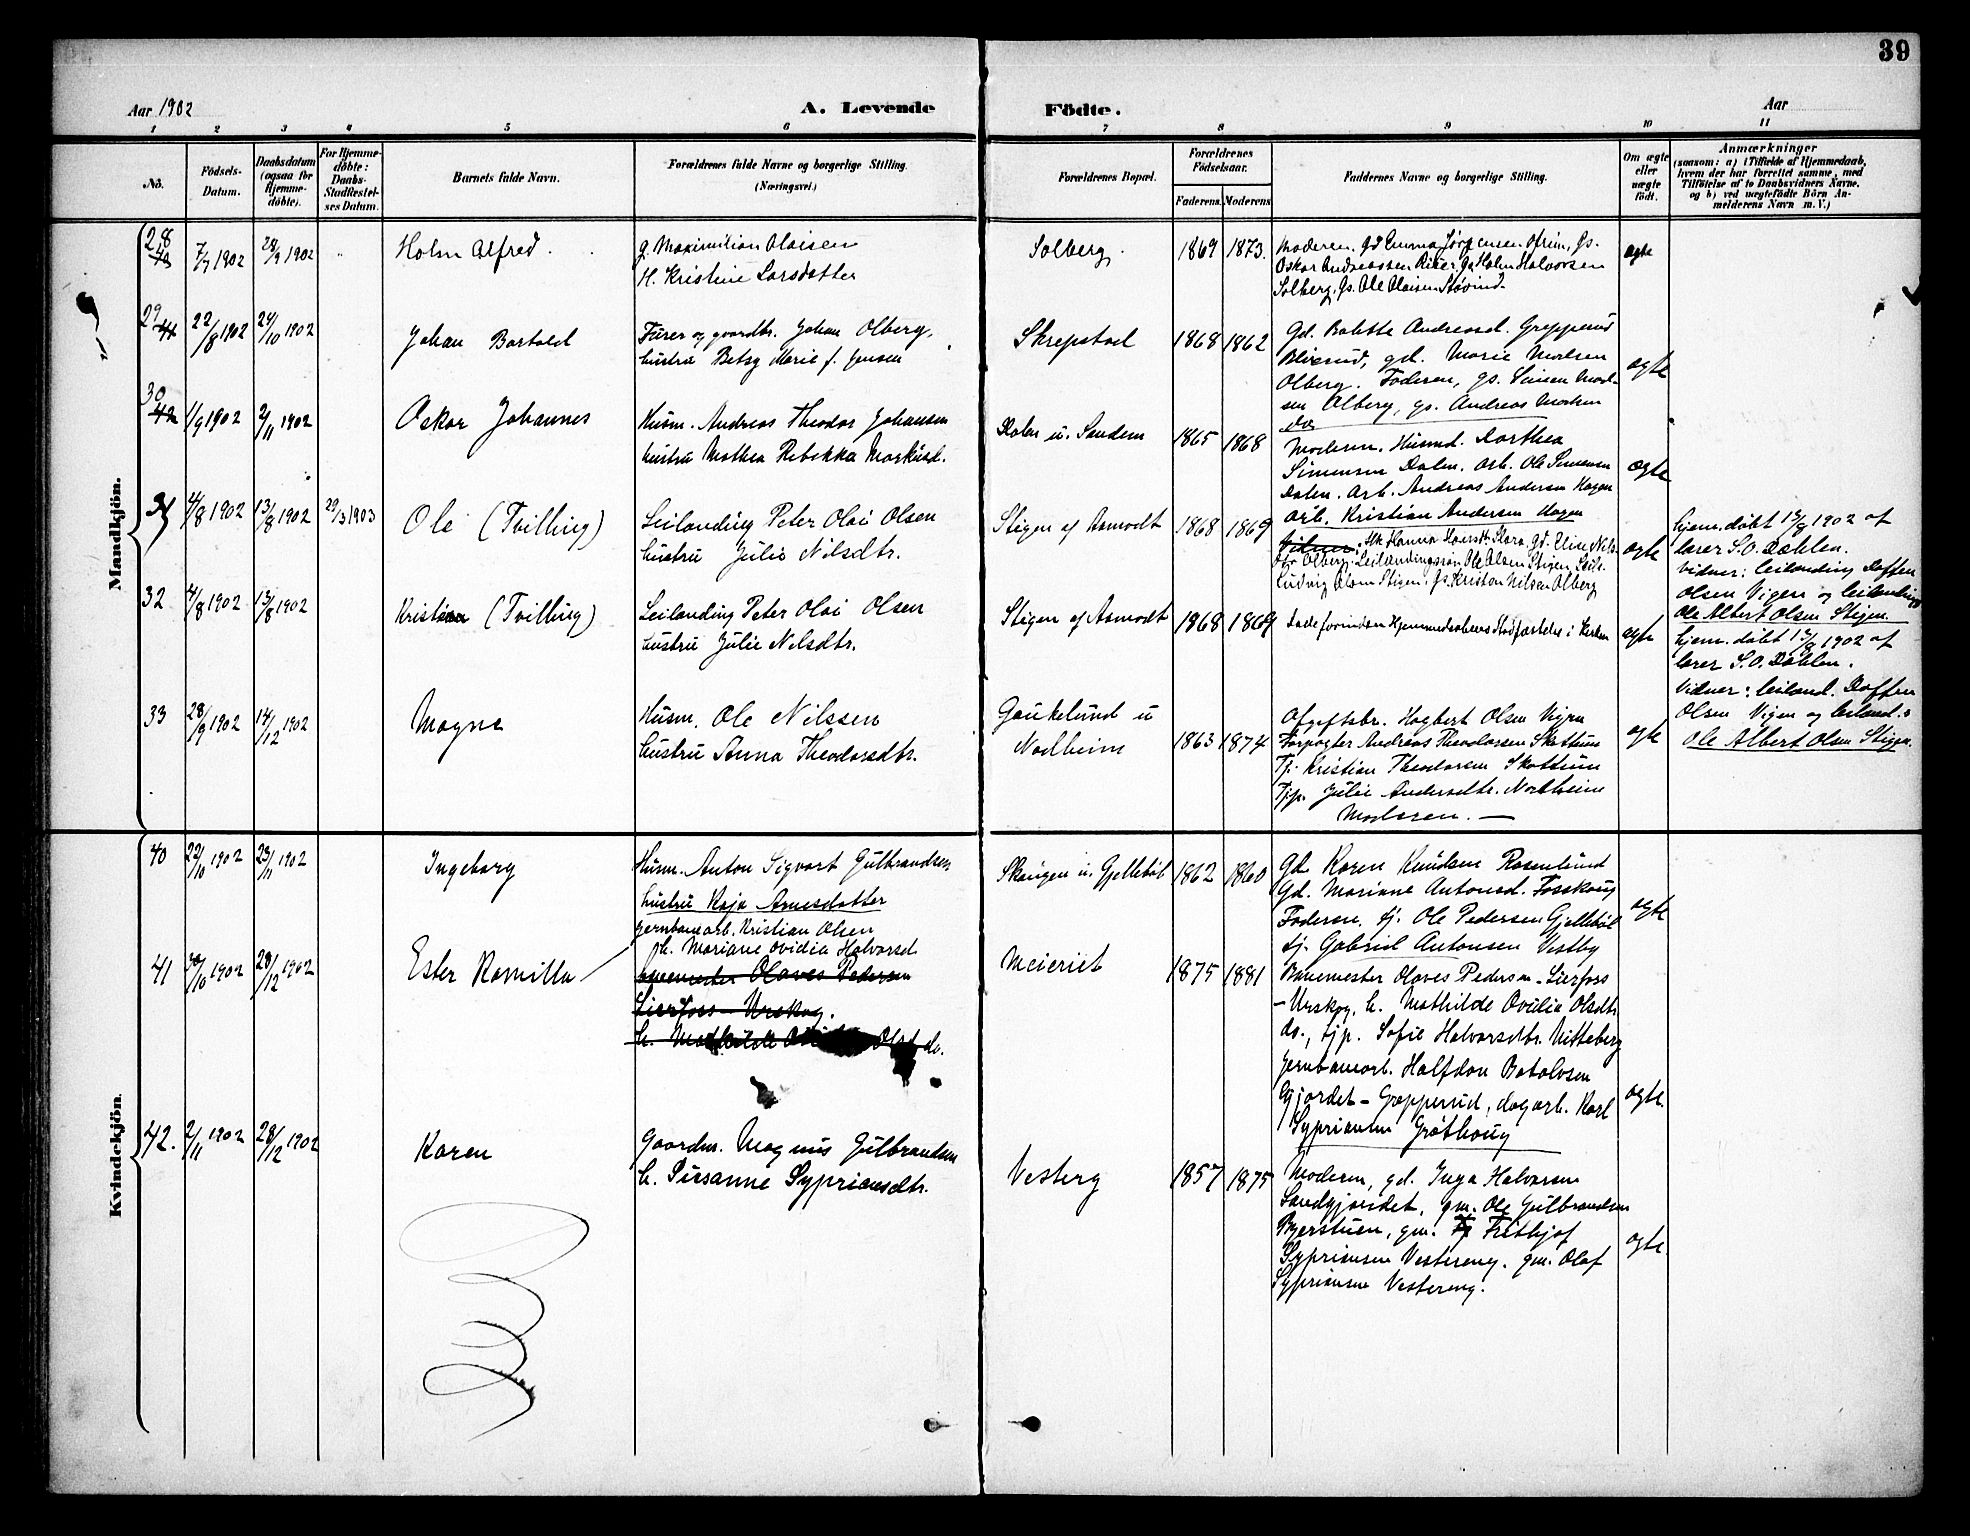 39
Aar 1902
A. Levende
Födte.
Aar
1 2 3 4 5 6 7 8 9 10 11
No.
Födsels-
Datum.
Daabsdatum
(ogsaa for
Hjemme-
döbte).
For Hjemme-
döbte:
Daabs-
Stadfæstel-
ses Datum.
Barnets fulde Navn.
Forældrenes fulde Navne og borgerlige Stilling.
(Næringsvei.)
Forældrenes Bopæl.
Forældrenes
Födselsaar.
Faderens. Moderens.
Faddernes Navne og borgerlige Stilling.
Om ægte
eller
uægte
födt.
Anmærkninger
(saasom: a) i Tilfælde af Hjemmedaab,
hvem der har forrettet samme, med
Tilföielse af to Daabsvidners Navne,
og b) ved uægtefödte Börn An-
melderens Navn m. V.)
Mandkjön.
28
40
7/7 1902
28/9 1902
Holm Alfred
g. Maximilian Olaisen
H. Kristine Larsdatter
Solberg
1869 1873
Moderen. gd Emma Jørgensen Ofrim, gs.
Oskar Andreassen Riser, gs Holm Halvorsen
Solberg, gs. Ole Olaisen Støvind.
ægte
29
41
22/8 1902
24/10 1902
Johan Bartold
Furer og gaardbr. Johan Olberg,
hustru Betsy Marie f. Jensen
Skrepstad
1868 1862
Gd. Balette Andreasd. Grepperud
gd. Marie Madsen
Olberg. Faderen, gs. Simen Mad-
sen Olberg, gs. Andreas Madsen
do
ægte
30
42
1/9 1902
2/11 1902
Oskar Johannes
Husm. Andreas Theodor Johansen
hustru Mathea Rebekka Markusd.
Dalen u. Sandem
1865 1868
Moderen. Husmd. Dorthea
Simensen Dalen. Arb. Ole Simensen
Dalen. Arb. Andreas Andersen Hagen
Arb. Kristian Andersen Hagen
ægte
31
4/8 1902
13/8 1902
29/3 1903
Ole (Tvilling)
Leilænding Peter Olai Olsen
hustru Julie Nilsdtr.
Stigen af Asmodt
1868 1869
Gd. Elise Nils-
dtr Olberg. Leilændingssøn Ole Olsen Stigen
Ludvig Olsen Stigen, gs. Kristan Nilsen Olberg
ægte
hjem. døbt 13/8 1902 af
lærer S. O. Dahlen.
Vidner: leilænding Daffen
Olsen Vigen og leilænding
Ole Albert Olsen Stigen.
32
4/8 1902
13/8 1902
Kristian (Tvilling)
Leilænding Peter Olai Olsen
hustru Julie Nilsdtr.
Stigen af Asmodt
1868 1869
Døde forinden Hjemmedaabens Stadfæstelse i Kirken
ægte
hjem. døbt 13/8 1902 af
lærer S. O. Dahlen.
Vidner: leilænd. Daffen
Olsen Vigen og leilænd.
Ole Albert Olsen Stigen.
33
28/9 1902
14/12 1902
Magne
Husm. Ole Nilssen
hustru Anna Theodorsdtr.
Gaukelund u
Nordheim
1863 1874
Afgiftsbr. Hagbert Olsen Vigen
Forpagter Andreas Theodorsen Skattum
Tj. Kristian Theodorsen Skattum
Tjp. Julie Andersdtr. Nordheim
Moderen.
ægte
Kvindekjön.
40
22/10 1902
23/11 1902
Ingeborg
Husm. Anton Sigvart Gulbrandsen
hustru Kaja Arnesdatter
Skaugen u. Gjellebøl
1862 1860
Gd Karen Knudsen Rosenlund
Gd. Mariane Antonsd. Fosskaug
Faderen. tj. Ole Pedersen Gjellebøl
tj. Gabriel Antonsen Vestby
ægte
41
30/10 1902
28/12 1902
Ester Kamilla
Jernbanearb. Kristian Olsen
h. Mariane Ovidia Halvorsd
banemester Olaves Pedersen
Lierfoss – Urskog.
h. Mathilde Olsd do.
Meieriet
1875 1881
Banemester Olaves Pedersen – Lierfoss
– Urskog, h. Mathilde Ovidia Olsdtr.
do., tjp. Sofie Halvorsdtr. Vitteberg
Jernbanearb. Halfdan Batolvsen
Gjordet – Grepperud, dagarb. Karl
Sypriansen Grøthaug
ægte.
42.
2/11 1902
28/12 1902
Karen
Gaardm. Magnus Gulbrandsen
h. Susanne Sypriansdtr.
Vesterg
1857 1875
Moderen, gd. Inga Halvorsen
Sandgjordet, gm. Ole Gulbrandsen
Bjerstuen, gm. Frithjof
Sypriansen Vestereng. gm. Olaf
Sypriansen Vestereng.
ægte.